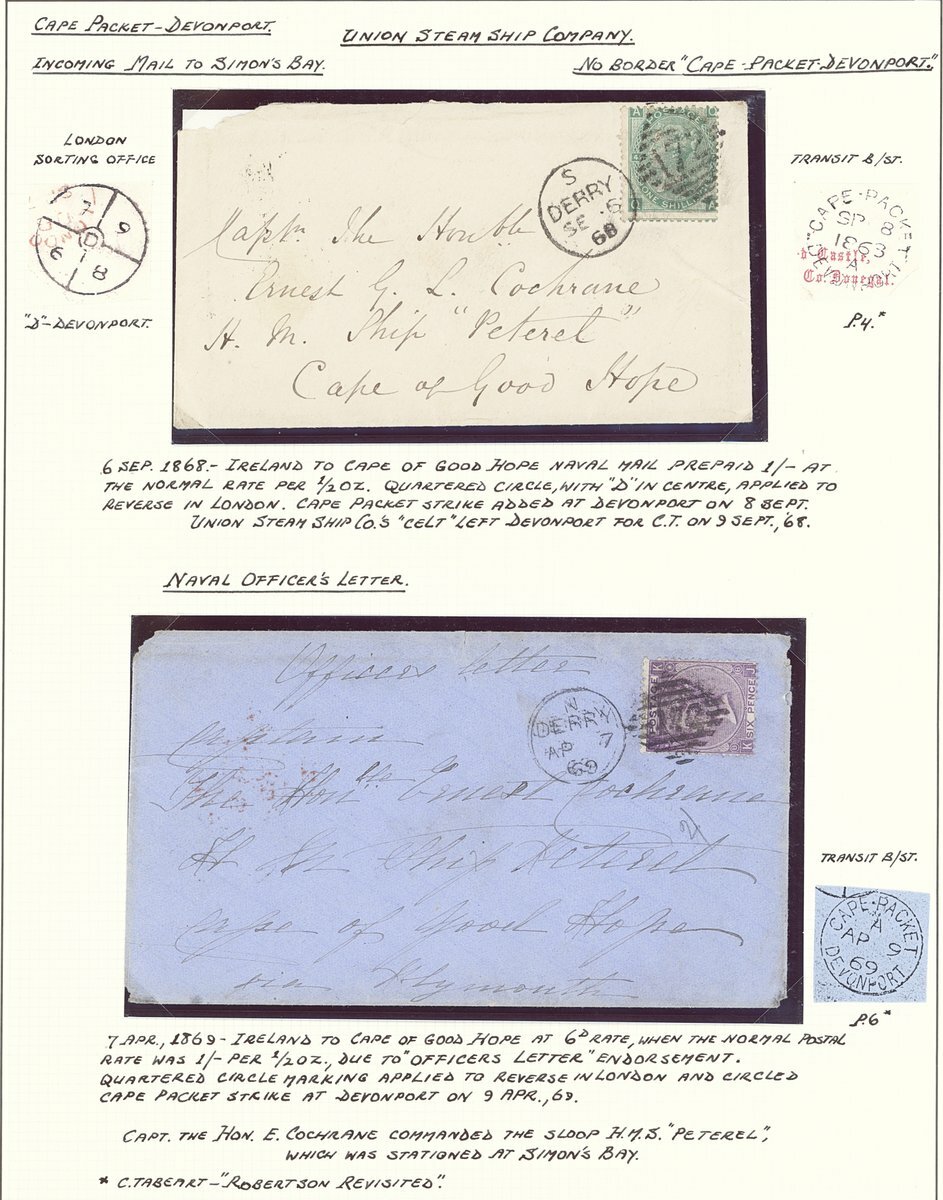 CAPE PACKET-DEVONPORT.
UNION STEAM SHIP COMPANY.
INCOMING MAIL TO SIMON'S BAY.
NO BORDER "CAPE-PACKET-DEVONPORT."
LONDON
SORTING OFFICE
D
"D"-DEVONPORT.
S
DERRY
SE 6
68
ONE SHILLING
Captn The Honble
Ernest G. L. Cochrane
H. M. Ship "Peterel"
Cape of Good Hope
TRANSIT B/ST.
"CAPE-PACKET
SP 8
1868
A
DEVONPORT
Castle,
Co. Donegal.
P.4.*
6 SEP. 1868.- IRELAND TO CAPE OF GOOD HOPE NAVAL MAIL PREPAID 1/- AT
THE NORMAL RATE PER 1/2 OZ. QUARTERED CIRCLE, WITH "D" IN CENTRE, APPLIED TO
REVERSE IN LONDON. CAPE PACKET STRIKE ADDED AT DEVONPORT ON 8 SEPT.
UNION STEAM SHIP CO.'S "CELT" LEFT DEVONPORT FOR C.T. ON 9 SEPT., '68.
NAVAL OFFICER'S LETTER.
Officers letter
Captain
The Honble Ernest Cochrane
H M Ship Peterel
Cape of Good Hope
via Plymouth
N
DERRY
AP 7
69
POSTAGE
SIX PENCE
172
2/
TRANSIT B/ST.
CAPE-PACKET
A
AP 9
69
DEVONPORT
P.6*
7 APR., 1869- IRELAND TO CAPE OF GOOD HOPE AT 6D RATE, WHEN THE NORMAL POSTAL
RATE WAS 1/- PER 1/2 OZ., DUE TO "OFFICERS LETTER" ENDORSEMENT.
QUARTERED CIRCLE MARKING APPLIED TO REVERSE IN LONDON AND CIRCLED
CAPE PACKET STRIKE AT DEVONPORT ON 9 APR., 69.
CAPT. THE HON. E. COCHRANE COMMANDED THE SLOOP H.M.S. "PETEREL",
WHICH WAS STATIONED AT SIMON'S BAY.
* C. TABEART-"ROBERTSON REVISITED".